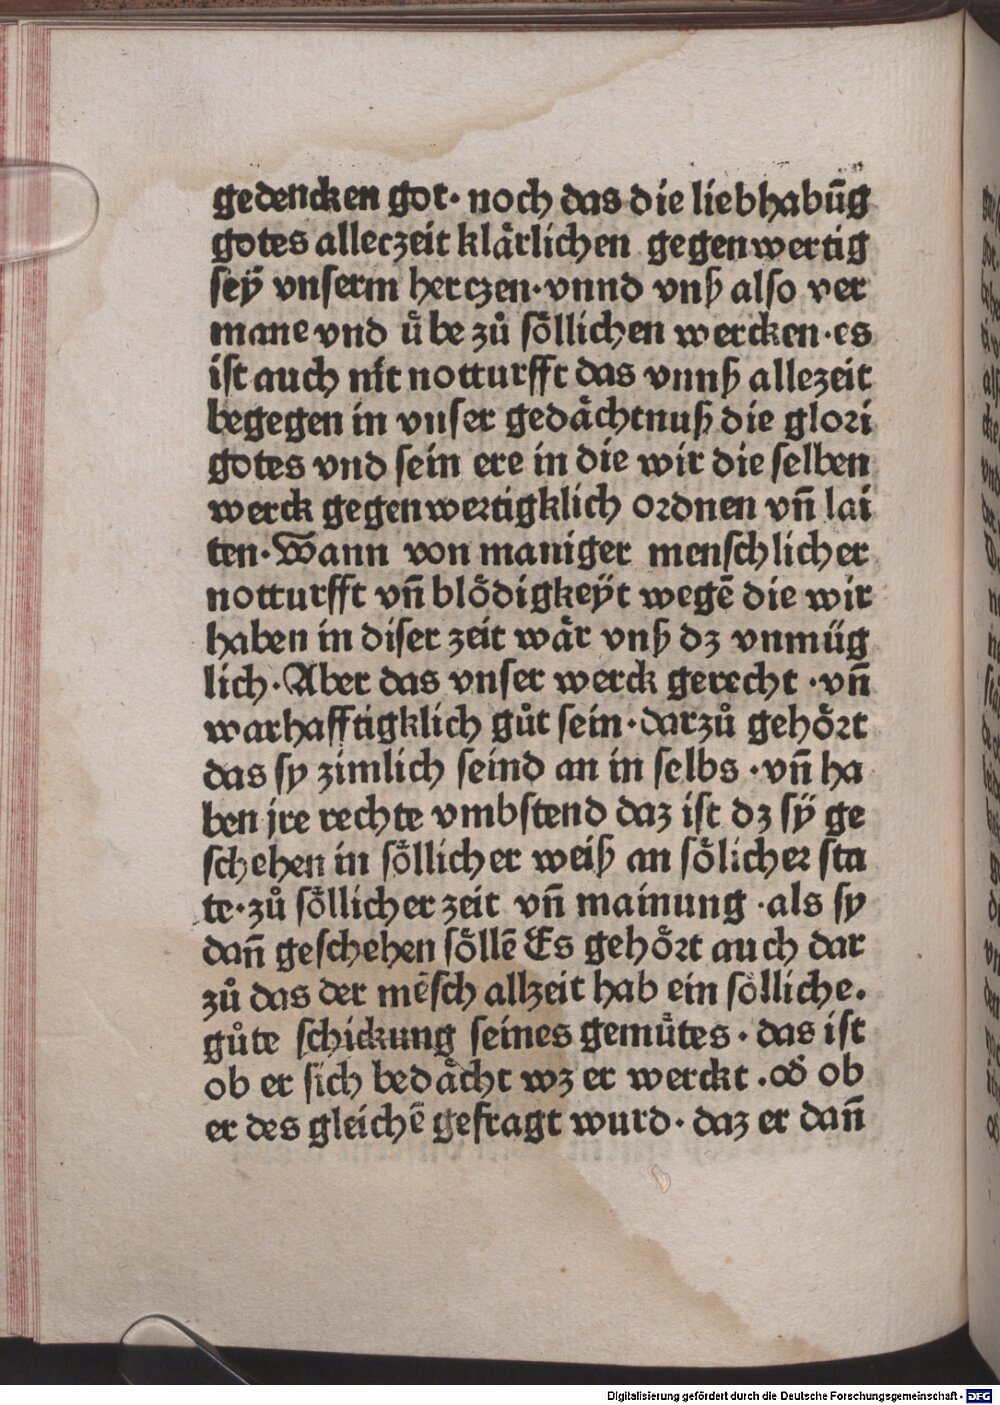 gedencken got· noch das die liebhabūg
gotes alleczeit klaͤrlichen gegenwertig
ſeÿ vnſerm herczen·vnnd vnß alſo ver
mane vnd uͤbe zuͦ ſoͤllichen wercken·es
iſt auch nit notturfft das vnnß allezeit
begegen in vnſer gedaͤchtnuß die glori
gotes vnd ſein ere in die wir die ſelben
werck gegenwertigklich ordnen vn̄ lai
ten·Wann von maniger menſchlicher
notturfft vn̄ bloͤdigkeÿt wegē die wir
haben in diſer zeit waͤr vnß dz vnmüg
lich·Aber das vnſer werck gerecht ·vn̄
warhafftigklich guͦt ſein·darzuͦ gehoͤrt
das ſy zimlich ſeind an in ſelbs ·vn̄ ha
ben jre rechte vmbſtend daz iſt dz ſÿ ge
ſchehen in ſoͤllicher weiß an ſoͤlicher ſta
te·zuͦ ſoͤllicher zeit vn̄ mainung ·als ſy
dan̄ geſchehen ſoͤllē Es gehoͤrt auch dar
zuͦ das der mēſch allzeit hab ein ſoͤlliche.
guͦte ſchickung ſeines gemuͤtes· das iſt
ob er ſich bedaͤcht wz er werckt .od̄ ob
er des gleichē gefragt wurd· daz er dan̄
Digitalisierung gefördert durch die Deutsche Forschungsgemeinschaft - DFG